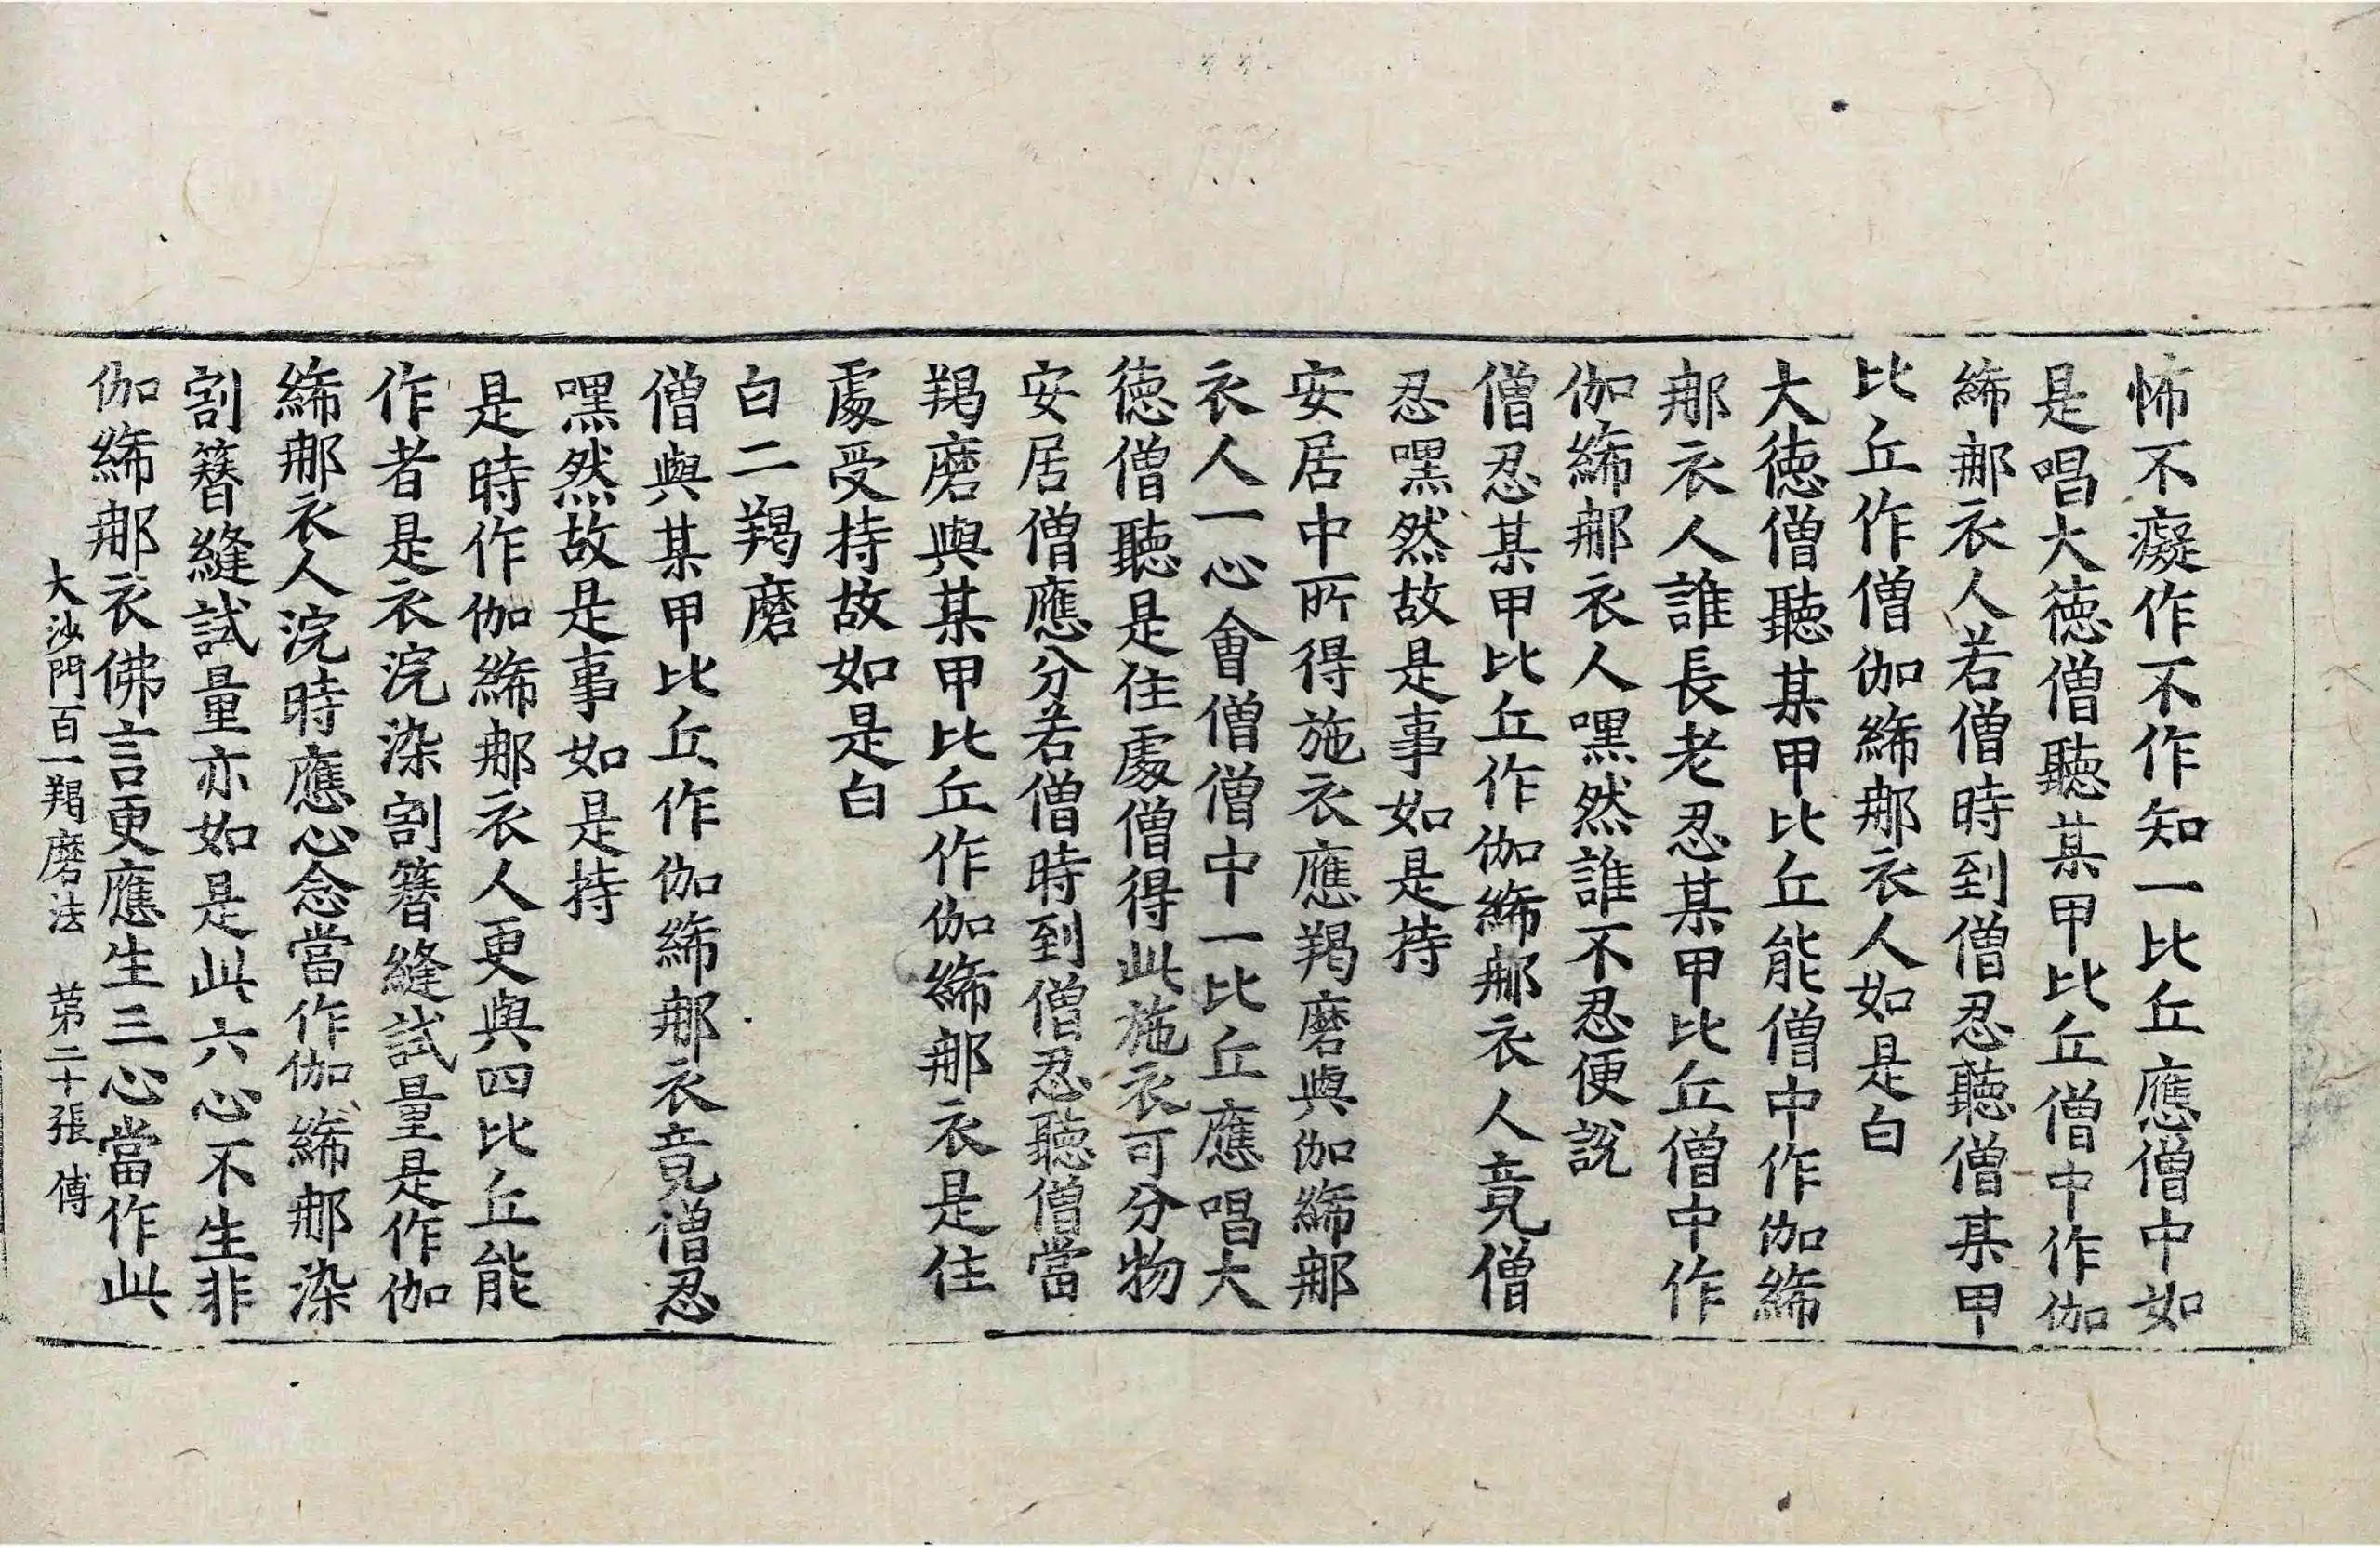 怖不癡作不作知一比丘應僧中如
是唱大德僧聽某甲比丘僧中作伽
絺那衣人若僧時到僧忍聽僧某甲
比丘作僧伽絺那衣人如是白
大德僧聽某甲比丘能僧中作伽絺
那衣人誰長老忍某甲比丘僧中作
伽絺那衣人嘿然誰不忍便說
僧忍某甲比丘作伽絺那衣人竟僧
忍嘿然故是事如是持
安居中所得施衣應羯磨與伽絺那
衣人一心會僧僧中一比丘應唱大
德僧聽是住處僧得此施衣可分物
安居僧應分若僧時到僧忍聽僧當
羯磨與某甲比丘作伽絺那衣是住
處受持故如是白
白二羯磨
僧與某甲比丘作伽絺那衣竟僧忍
嘿然故是事如是持
是時作伽絺那衣人更與四比丘能
作者是衣浣染割簪縫試量是作伽
絺那衣人浣時應心念當作伽絺那染
割簪縫試量亦如是此六心不生非
伽絺那衣佛言更應生三心當作此
大沙門百一羯磨法 第二十張 傅